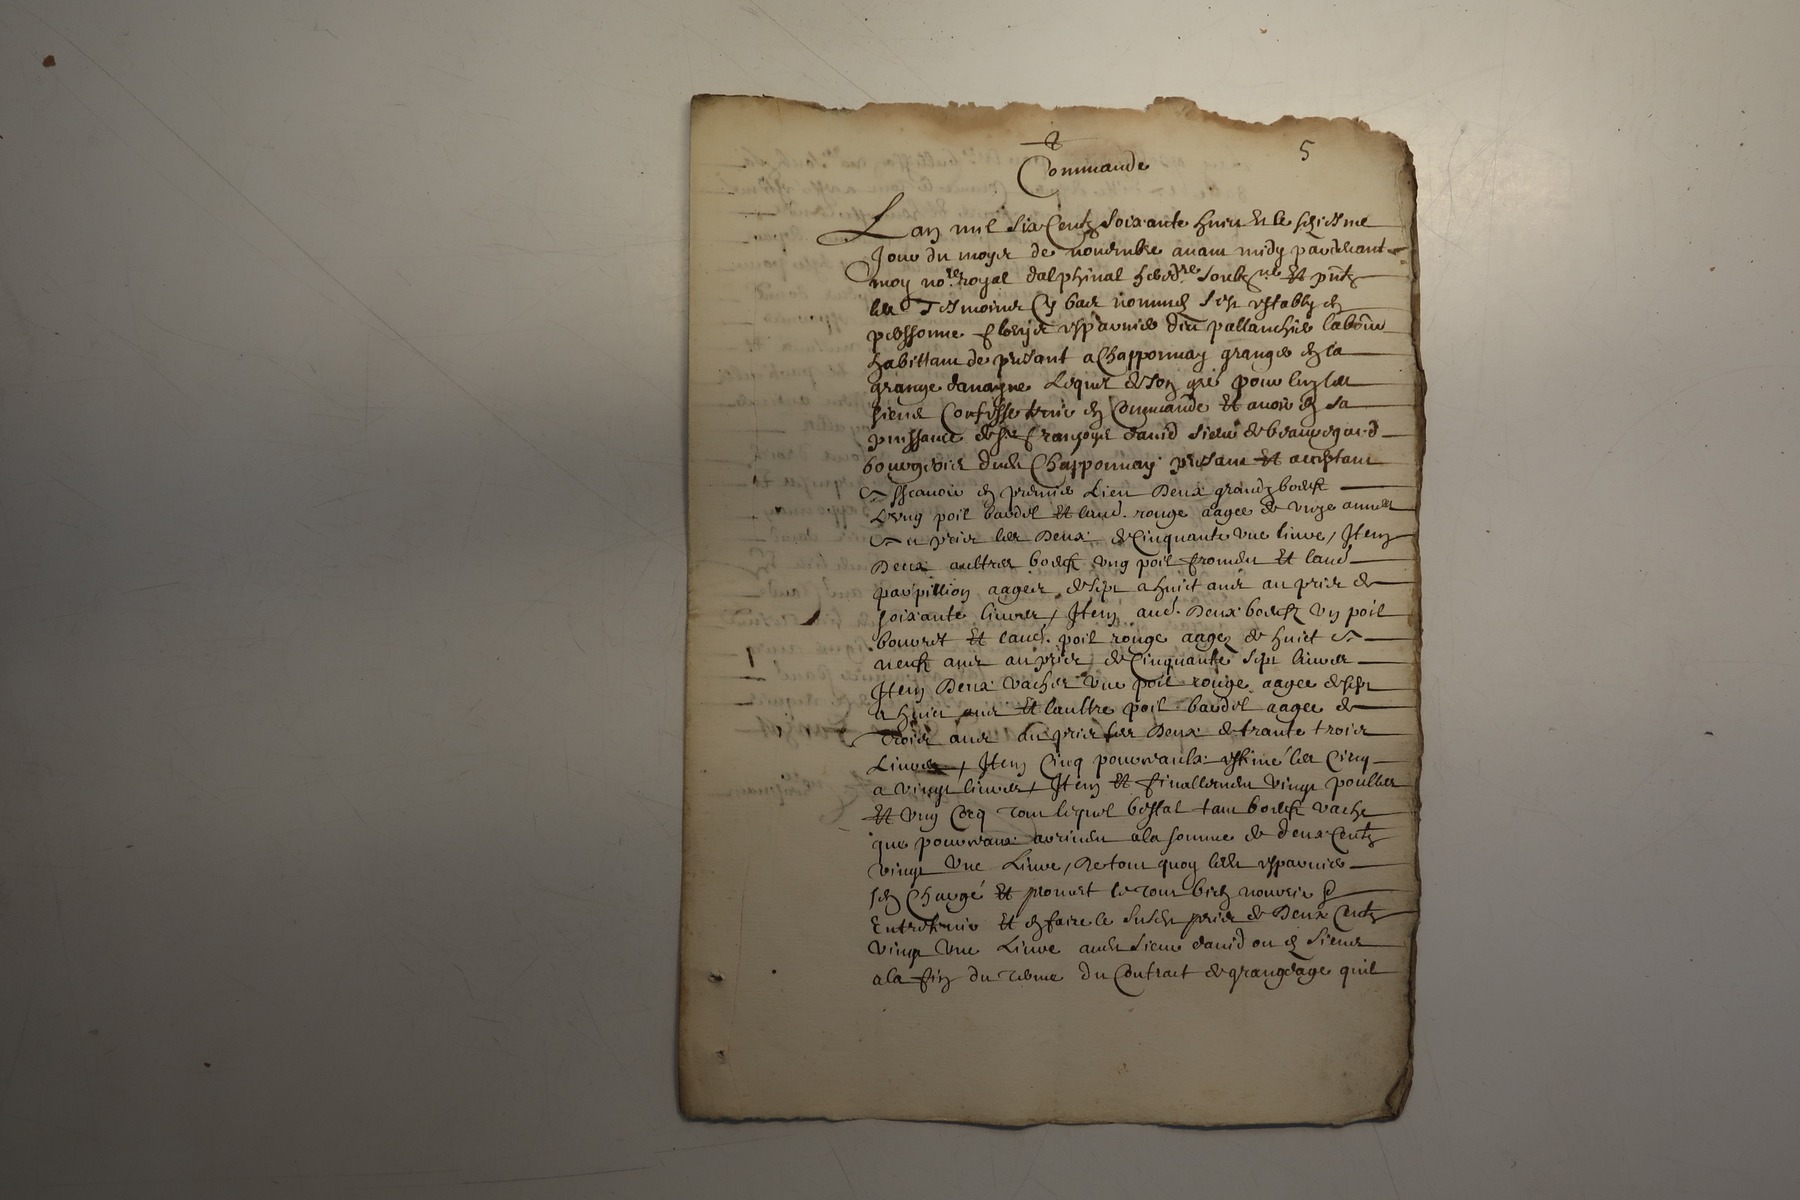 5
Commande
Lan mil six Centz soixante huict Et le
Jour du moys de novembre avant midy pardevant
moy no.re royal dalphinal soubz.né Et p̃ntz
les Tesmoins Cy bas nommes sest estably en
personne dict pallanchie labour
habittant de present a Chapponnay granger en la
grange Lequel de son gré pour luy les
siens Confesse tenir en Commande Et avoir en sa
puissance de sr françoys david sieur de beauregard
bourgeois dudt Chapponnay present Et acceptant
Asscavoir en premier Lieu Deux grandz boeufz
Lung poil bardel Et laud. rouge aages de unze annes
au prix les Deux de Cinquante une livre, Item
Deux aultres boeufz ung poil froment Et laud
papillion aages de sept a huict ans au prix de
soixante livres, Item aud. Deux boeufz un poil
bouret Et laud. poil rouge aages de huict a
neufz ans au prix de Cinquante sept livres
Item Deux vaches une poil rouge aagee de sept
a huict ans Et laultre poil bardel aagee de
trois ans au prix les Deux de trante trois
Livres, Item Cinq pourceaulx estimé les Cinq
a vingt livres, Item Et finallement vingt poulles
Et ung Cocq tout lequel bestal tant boeufz vache
que pourceaux a la somme de deux Centz
vingt une Livre, De tout quoy ledt
sen Chargé Et promet le tout bien nourrir
Entretenir Et en faire le susdt prix de Deux Centz
vingt une Livre audt sieur david ou es siens
a la fin du terme du Contract de grangeage quil